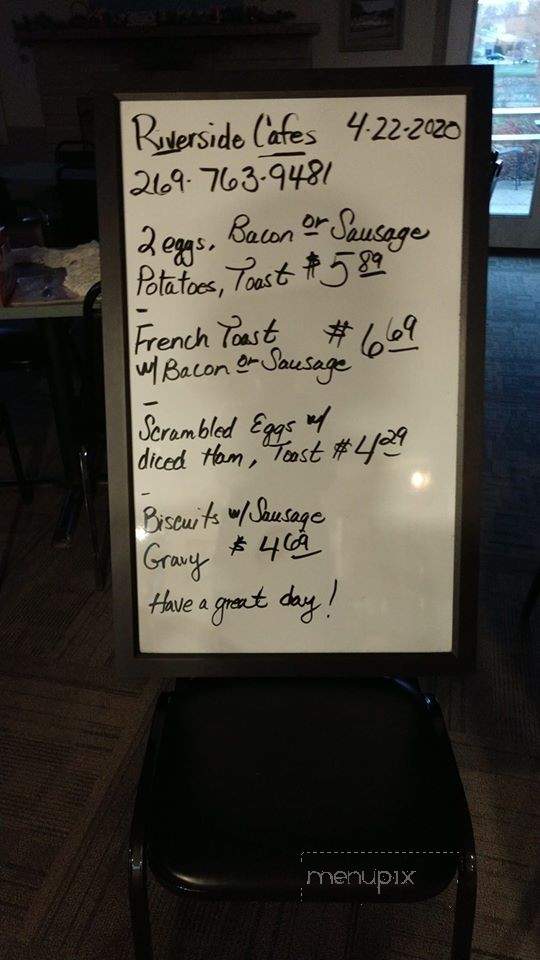 Riverside Cafes 4-22-2020
269-763-9481
2 eggs, Bacon or Sausage
Potatoes, Toast $5 89
-
French Toast $6 69
w/ Bacon or Sausage
-
Scrambled Eggs w/
diced Ham, Toast $4 29
-
Biscuits w/ Sausage
Gravy $4 69
Have a great day!
menupix